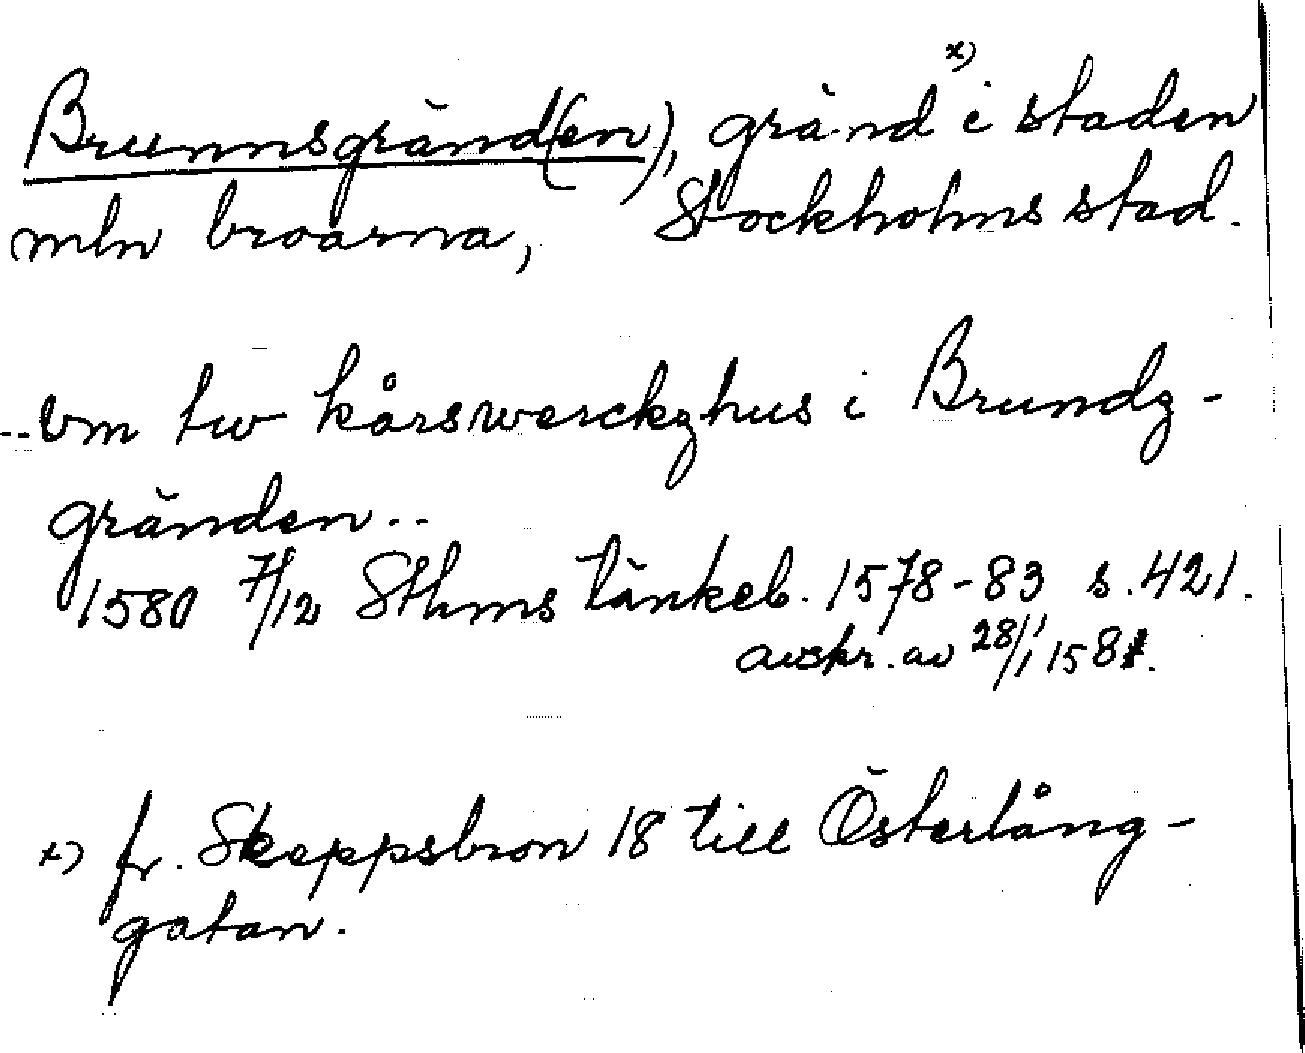 Brunnsgränd(en), gränd x) i staden
mln broarna, Stockholms stad.
..vm tw kårswerckzhus i Brundz-
gränden..
1580 7/12 Sthms tänkeb. 1578-83 s. 421.
avskr. av 28/1 1581.
x) fr. Skeppsbron 18 till Österlång-
gatan.